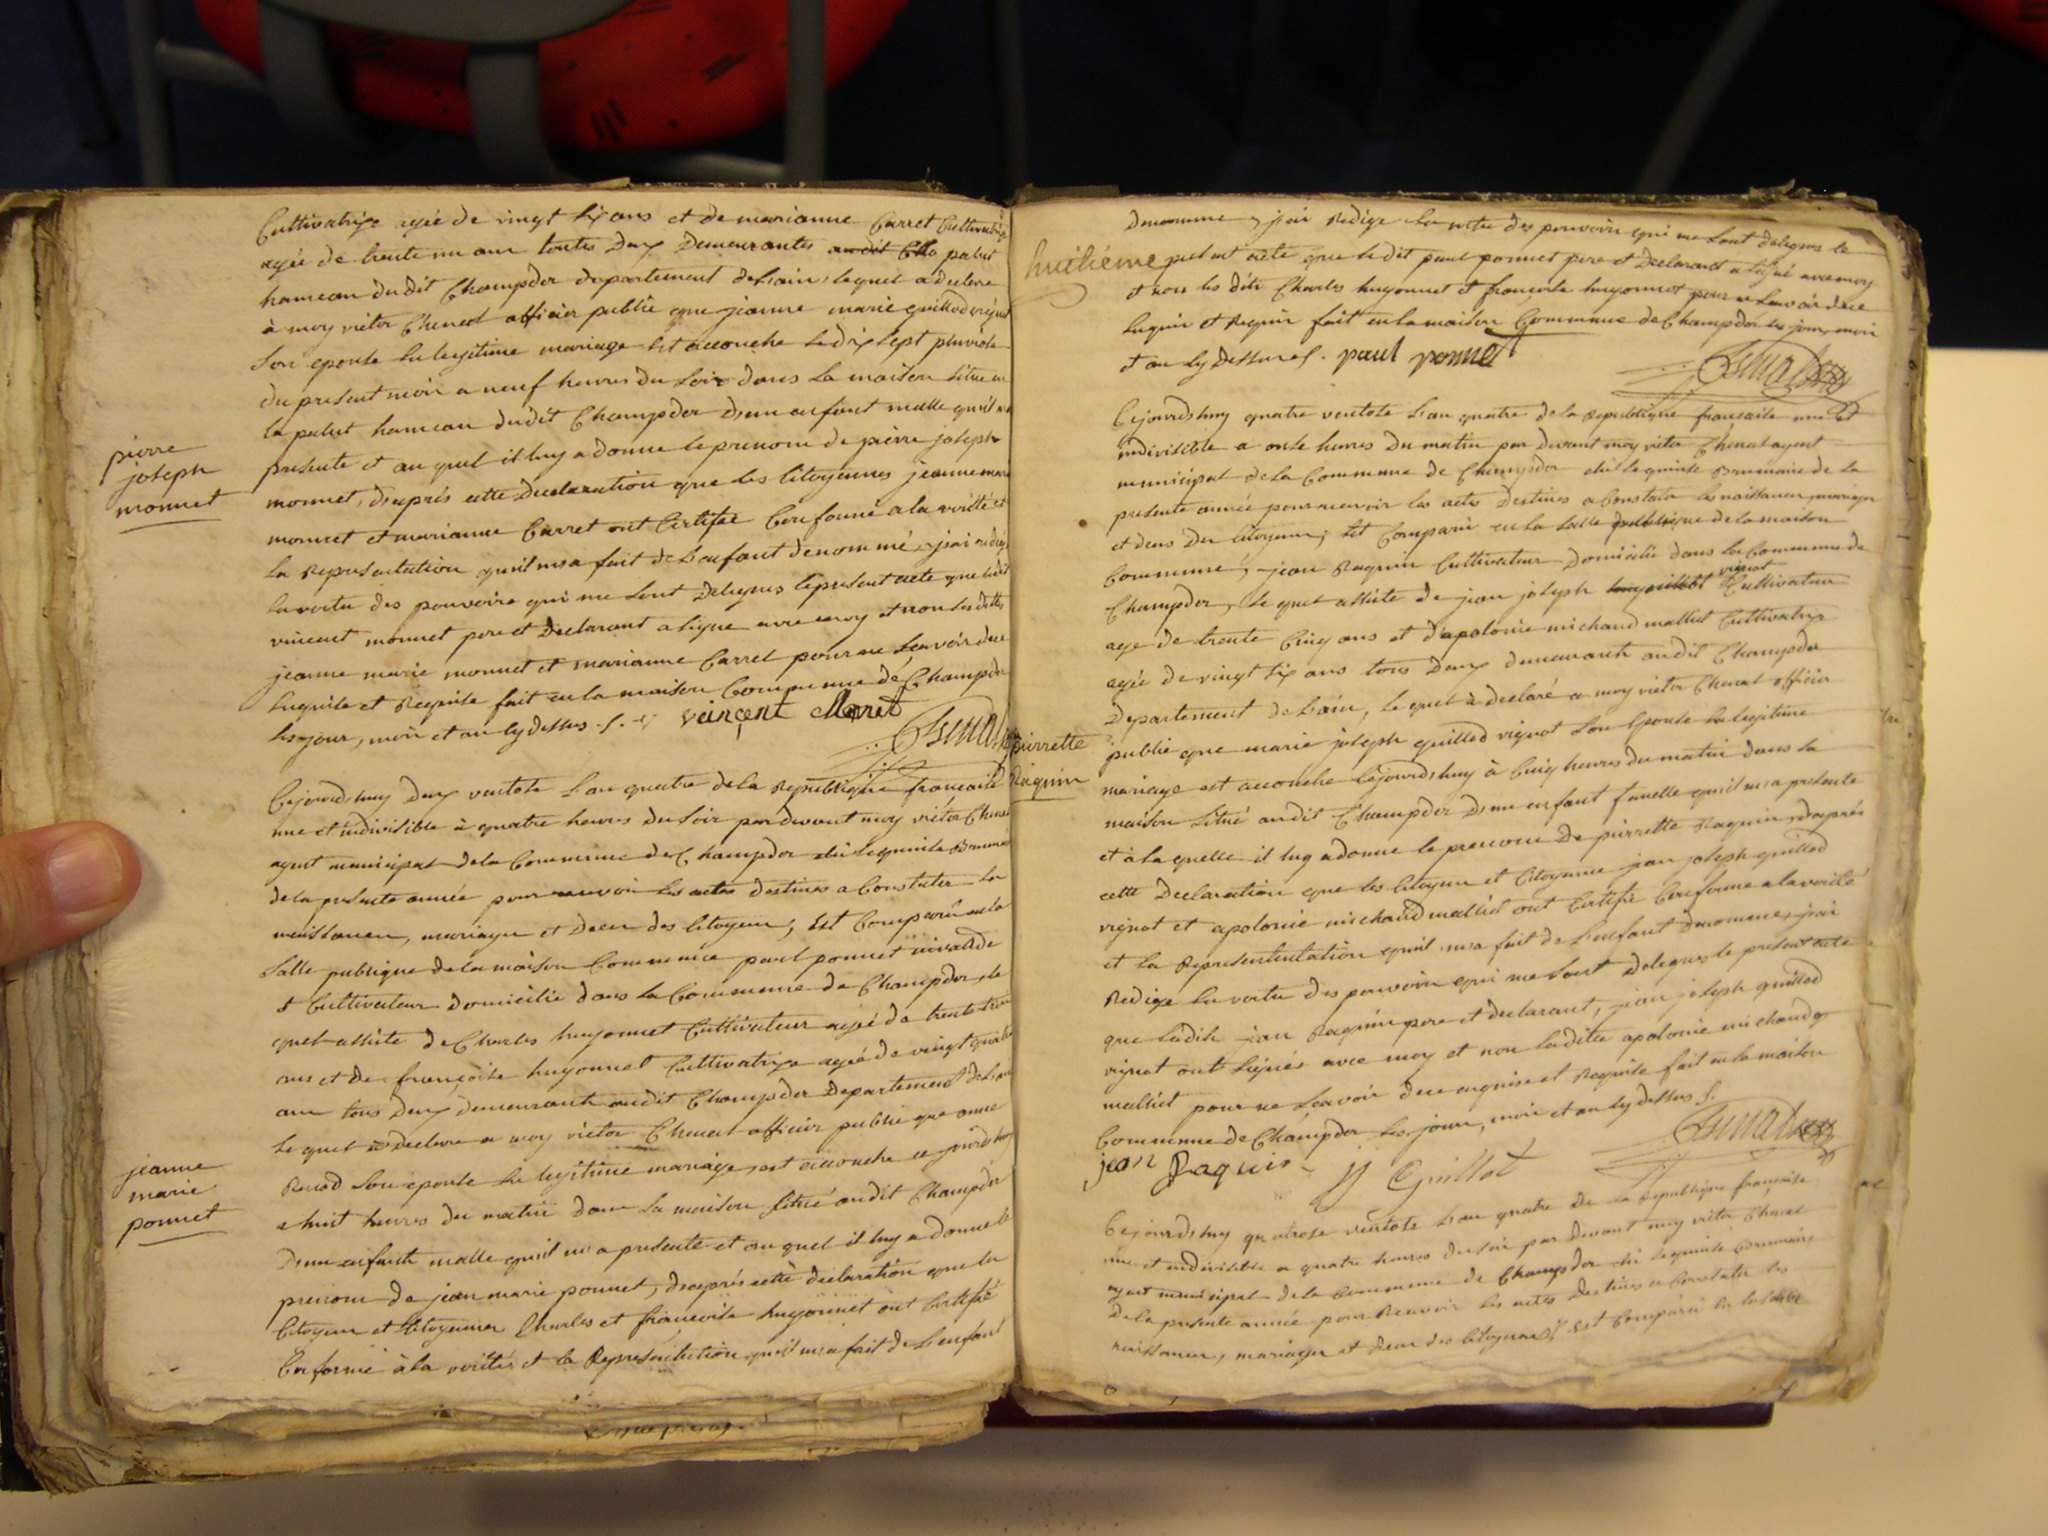 Cultivatrixe agée de vingt six ans et de marianne Carret Cultivatrixe
agée de trente un ans toutes Deux Demeurantes palut
hameau dudit Champdor departement de Lain, lequel a declare
à moy victor Chenel officier publie que jeanne marie guillod vignot
Son epouse En legitime mariage est accouche Le dix Sept pluviose
du present mois a neuf heures du Soir dans La maison Situe en
la palut hameau dudit Champdor D'un enfant malle qu'il m'a
presente et au quel il luy a donne le prenom de pierre joseph
monnet, d'après cette Declaration que les Citoyennes jeanne marie
monnet et marianne Carret ont Certifié Conforme a la verité et
La Representation qu'il m'a fait de L'enfant denommé, j'ai redigé
En vertu des pouvoirs qui me Sont Delegues le present acte que ledit
vincent monnet pere et Declarant a Signe avec moy et non les dittes
jeanne marie monnet et marianne Carret pour ne Scavoir de ce
Enquise et Requise fait en la maison Commune de Champdor
Les jour, mois et an cy dessus vincent Monet
pierre
joseph
monnet
Cejourdhuy Deux ventose L'an quatre de la Republique francaise
une et indivisible à quatre heures du Soir par devant moy victor Chenel
agent municipal de la Commune de Champdor élu le quinse Brumaire
de la presente année pour recevoir les actes destines a Constater la
naissances, mariages et Deces des Citoyens, Est Comparû en la
Salle publique de la maison Commune paul ponnet invalide
et Cultivateur domicilie dans la Commune de Champdor, le
quel assiste de Charles hugonnet Cultivateur agée de trente trois
ans et de françoise hugonnet Cultivatrixe agée de vingt quatre
ans tous Deux demeurants audit Champdor Departement de Lain
Le quel a Declare a moy victor Chenel officier publie que anne
Ravod Son epouse En legitime mariage, est accouche ce jourdhuy
a huit heures du matin dans La maison Situé audit Champdor
D'un enfant malle qu'il m'a presente et au quel il luy a donne le
prenom de jean marie ponnet, d'après cette declaration que les
Citoyen et Citoyenne Charles et francoise hugonnet ont Certifié
Conforme à la verité et la Representation qu'il m'a fait de L'enfant
jeanne
marie
ponnet
Denomme, j'ai Redige En vertu des pouvoirs qui me Sont delegues le
huitiéme
present acte que ledit paul ponnet pere et Declarant a Signé avec moy
et non les dits Charles hugonnet et francoise hugonnet pour ne Scavoir de ce
Enquis et Requis fait en la maison Commune de Champdor les jour, mois
et an cy Dessus paul ponnet
Cejourdhuy quatre ventose L'an quatre de la Republique francaise une et
indivisible a onse heures Du matin par devant moy victor Chenel agent
municipal de La Commune de Champdor élu le quinse Brumaire de la
presente année pour recevoir les actes Destines a Constater les naissances, mariages
et deces Des Citoyens, Est Comparû en La Salle publique de la maison
Commune, jean Raquin Cultivateur Domicilie dans la Commune de
Champdor, le quel assiste de jean joseph vignot Cultivateur
age de trente Cinq ans et d'apolonie michaud mallict Cultivatrixe
agée de vingt Six ans tous Deux demeurants audit Champdor
Departement de Lain, le quel à declaré a moy victor Chenel officier
publie que marie joseph guillod vignot Son Epouse En legitime
mariage est accouche Cejourdhuy à Cinq heures du matin dans La
maison Situé audit Champdor D'un enfant femelle qu'il m'a presente
et à la quelle il luy a donne le prenom De pierrette Raquin, d'après
cette Declaration que les Citoyen et Citoyenne jean joseph guillod
vignot et apolonie michaud mallict ont Certifié Conforme a la verité
et La Representation qu'il m'a fait de L'enfant denomme, j'ai
Redige En vertu des pouvoirs qui me Sont Delegues le present acte
que Ledit jean Raquin pere et declarant, jean joseph guillod
vignot ont Signés avec moy et non ladite apolonie michaud
mallict pour ne Scavoir de ce enquise et Requise fait en la maison
Commune de Champdor Les jour, mois et an cy dessus
jean Raquin JJ Guillot
pierrette
Raquin
Cejourdhuy quatorse ventose L'an quatre de La Republique française
une et indivisible a quatre heures du Soir par Devant moy victor Chenel
agent municipal de la Commune de Champdor élu le quinse Brumaire
De la presente année pour Recevoir les actes Destines a Constater les
naissances, mariages et deces des Citoyens Est Comparû en la Salle